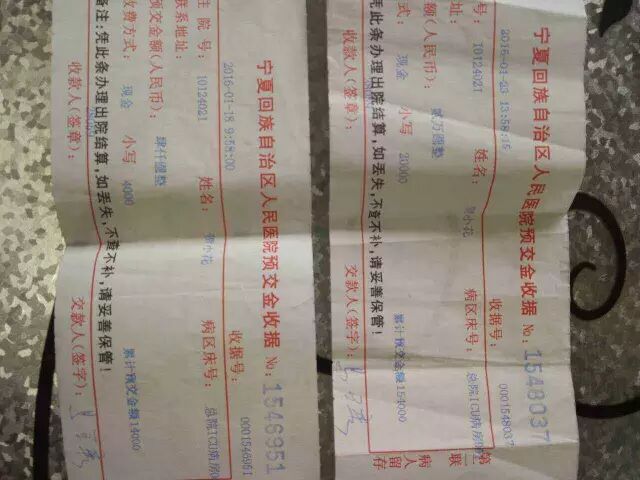 宁夏回族自治区人民医院预交金收据 No: 1548037
2016-01-23 13:58:15 收据号: 0001548037
号: 10124021 姓名: 小花 病区床号: 总院ICU病房
址:
额(人民币): 贰万圆整 累计预交金额154000
式: 现金 小写 20000
凭此条办理出院结算,如丢失,不查不补,请妥善保管!
收款人(签章): 交款人(签字):
第
联
病
人
留
存
宁夏回族自治区人民医院预交金收据 No: 1546951
2016-01-18 9:58:00 收据号: 0001546951
住院号: 10124021 姓名: 小花 病区床号: 总院ICU病房
联系地址:
预交金额(人民币): 肆仟圆整 累计预交金额14000
收费方式: 现金 小写 4000
备注:凭此条办理出院结算,如丢失,不查不补,请妥善保管!
收款人(签章): 交款人(签字):